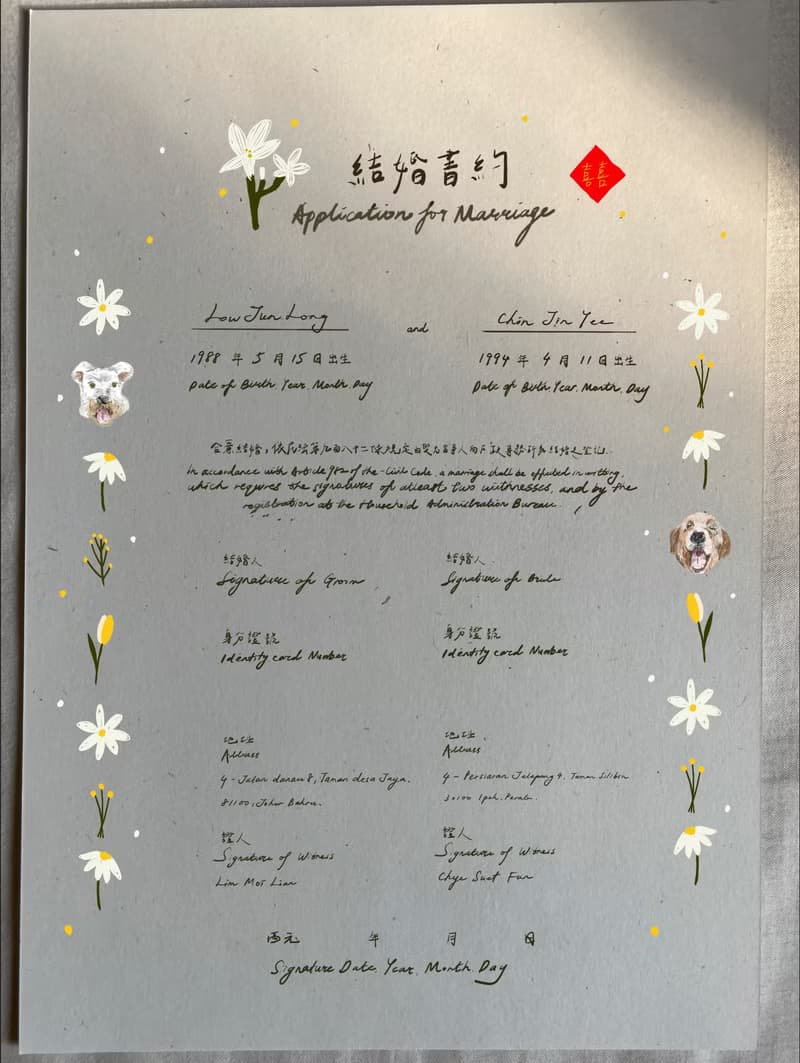 結婚書約
囍
Application for Marriage
Low Jun Long
and
Chin Jin Yee
1988 年 5 月 15 日出生
1994 年 4 月 11 日出生
Date of Birth, Year, Month, Day
Date of Birth, Year, Month, Day
結婚,依民法第九百八十二條規定
In accordance with Article 982 of the Civil Code, a marriage shall be effected in writing,
which requires the signatures of atleast two witnesses, and by the
registration at the Household Administration Bureau.
結婚人
結婚人
Signature of Groom
Signature of Bride
身分證號
身分證號
Identity card Number
Identity card Number
地址
地址
Address
Address
4 - Jalan danau 8, Taman desa Jaya,
4 - Persiaran Jelapang 9, Taman Silibin
81100, Johor Bahru.
30100 Ipoh, Perak.
證人
證人
Signature of Witness
Signature of Witness
Lim Moi Lian
Chye Suet Fun
西元 年 月 日
Signature Date, Year, Month, Day